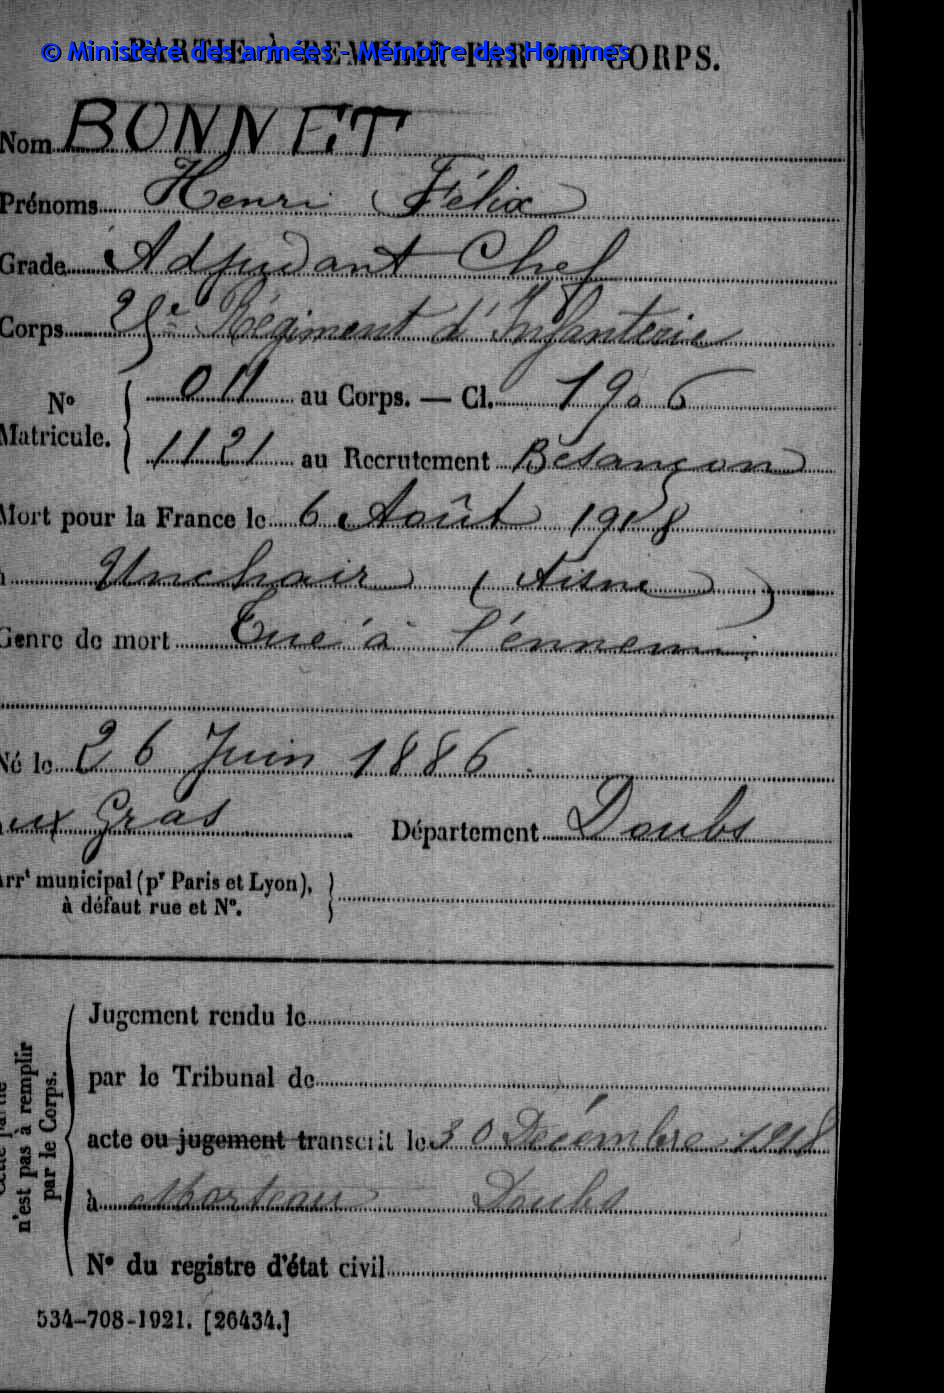 © Ministère des armées - Mémoire des Hommes
PARTIE À REMPLIR PAR LE CORPS.
Nom BONNET
Prénoms Henri (Félix)
Grade Adjudant Chef
Corps 2 e Régiment d'Infanterie
No Matricule. 011 au Corps. — Cl. 1906
1121 au Recrutement Besançon
Mort pour la France le 6 Août 1918
à Unchair (Aisne)
Genre de mort Tué à l'ennemi
Né le 26 Juin 1886
aux Gras Département Doubs
Arrt municipal (pr Paris et Lyon),
à défaut rue et No.
Cette partie
n'est pas à remplir
par le Corps.
Jugement rendu le
par le Tribunal de
acte ou jugement transcrit le 30 Décembre 1918
à Morteau Doubs
No du registre d'état civil
534-708-1921. [26434.]